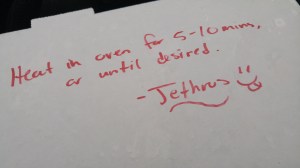 Heat in oven for 5-10 mins,
or until desired.
-Jethros